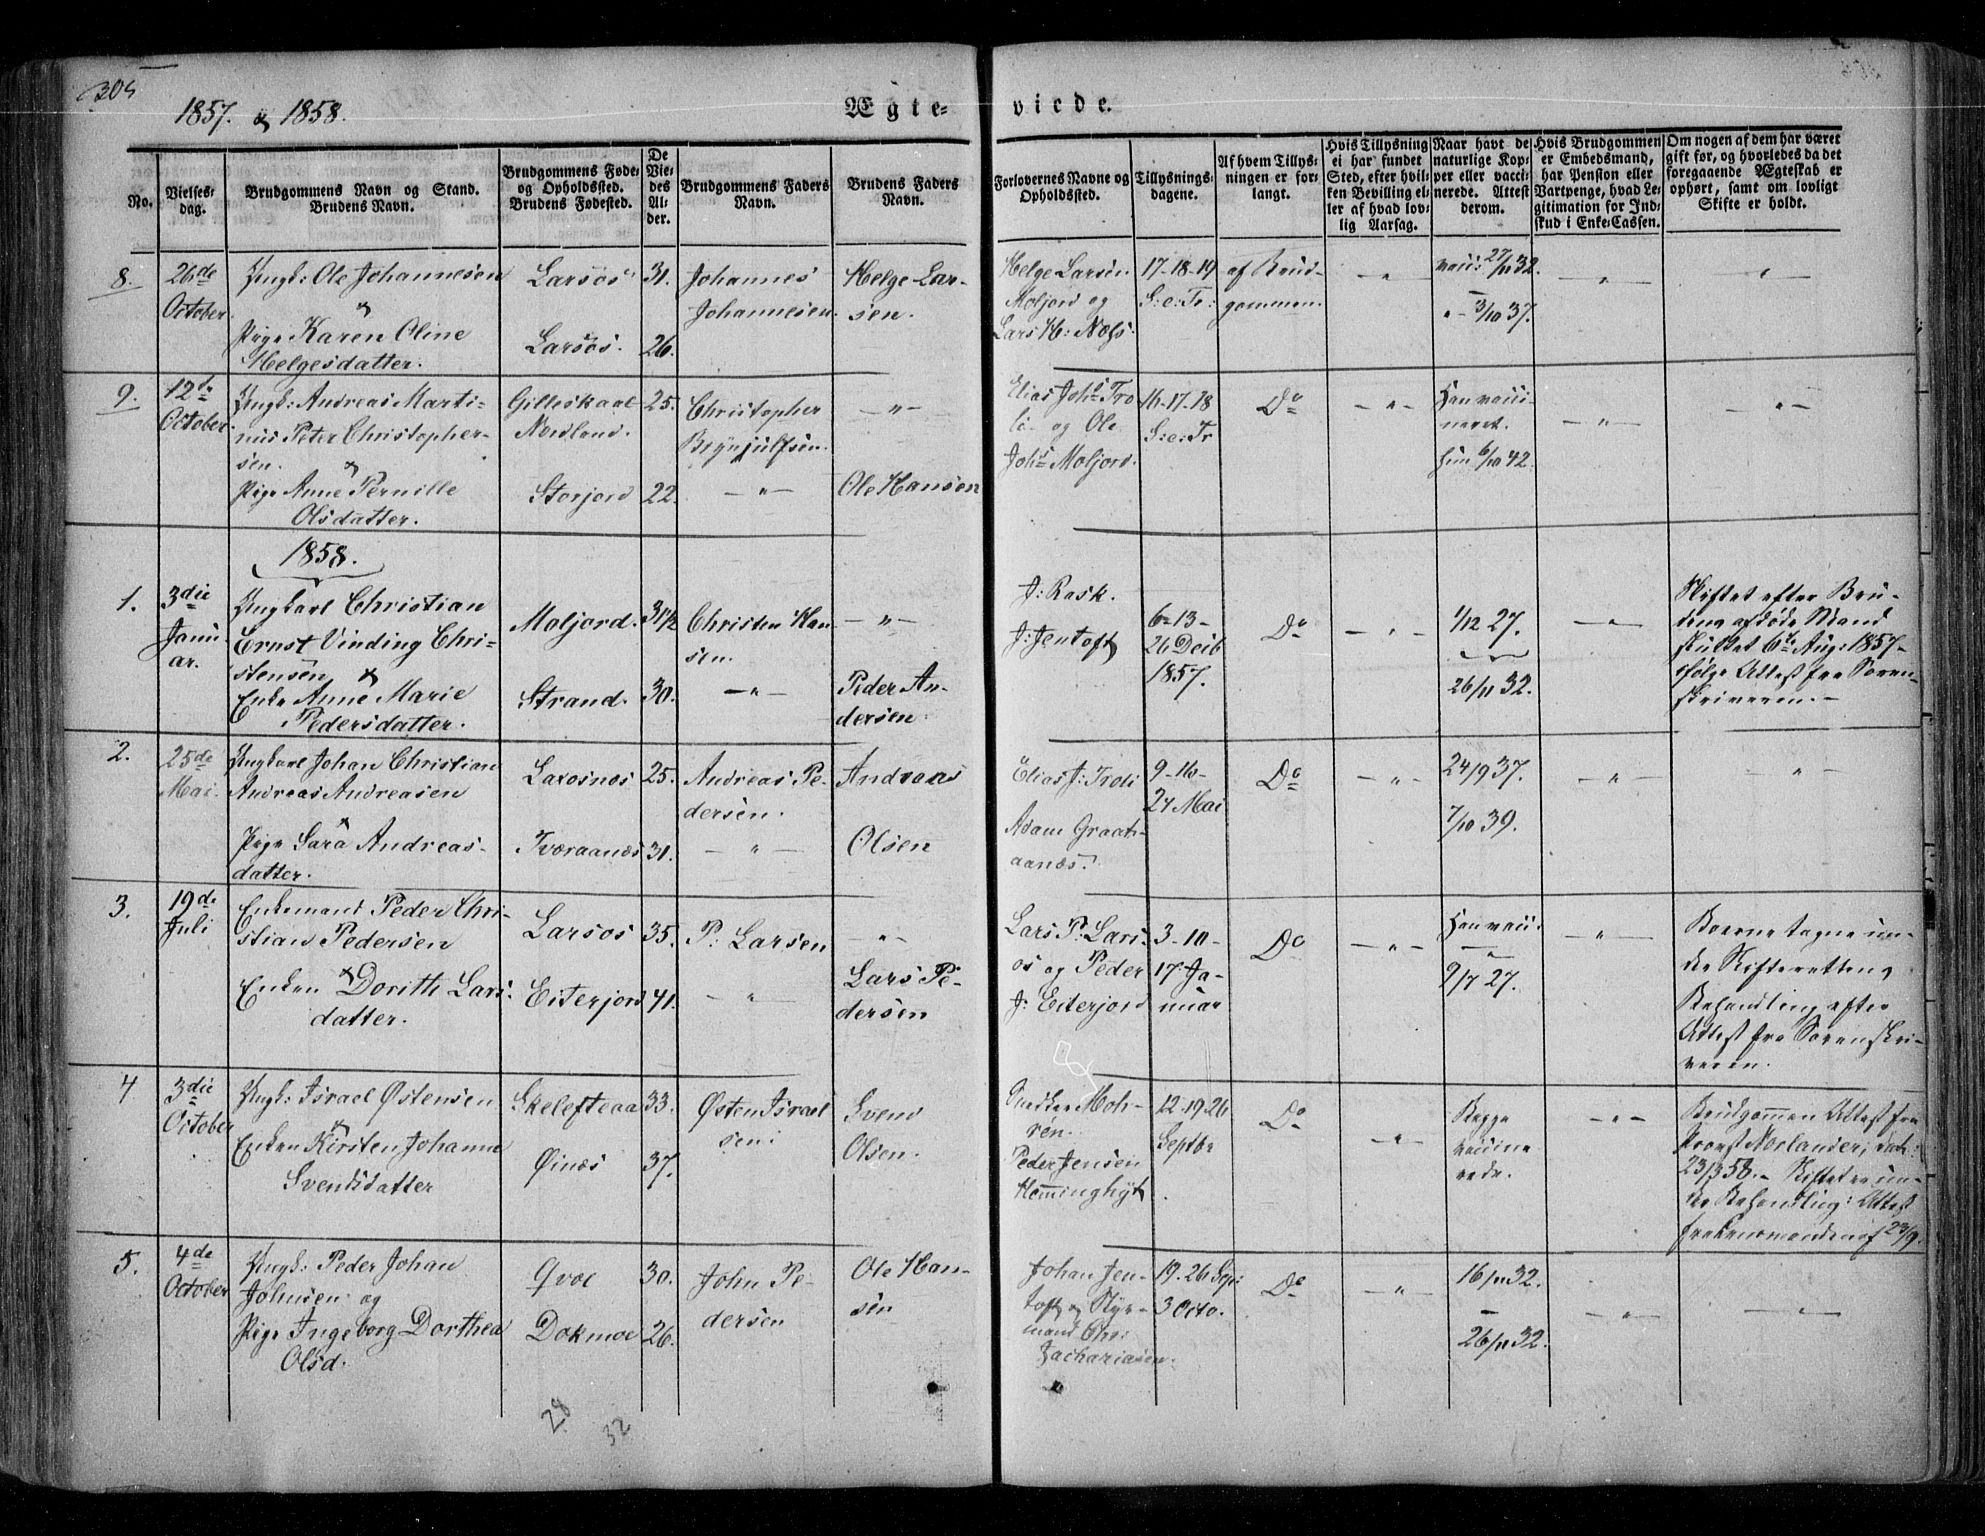 305
1857. & 1858.
Ægte-
viede.
No.
Vielses-
dag.
Brudgommens Navn og Stand.
Brudens Navn.
Brudgommens Føde-
og Opholdssted.
Brudens Fødested.
De
Vie-
des
Al-
der.
Brudgommens Faders
Navn.
Brudens Faders
Navn.
Forlovernes Navne og
Opholdssted.
Tillysnings-
dagene.
Af hvem Tillys-
ningen er for-
langt.
Hvis Tillysning
ei har fundet
Sted, efter hvil-
ken Bevilling el-
ler af hvad lov-
lig Aarsag.
Naar havt de
naturlige Kop-
per eller vacci-
nerede. Attest
derom.
Hvis Brudgommen
er Embedsmand,
har Pension eller
Vartpenge, hvad Le-
gitimation for Ind-
skud i Enke-Cassen.
Om nogen af dem har været
gift før, og hvorledes da det
foregaaende Ægteskab er
ophørt, samt om lovligt
Skifte er holdt.
8.
26de
October
Ungk: Ole Johannesen
&
Pige Karen Oline
Helgesdatter.
Larsos
Larsos.
31.
26.
Johannes
Johannesen.
Helge Lar-
sen.
Helge Larsen
Moljord og
Lars H: Næss.
17-18-19
S: e: Tr:
af Brud-
gommen.
— " —
vacc: 27/11 32.
" — 3/10 37.
"
"
9.
12de
October
Ungk: Andreas Marti-
nus Peter Christopher-
sen. &
Pige Anne Pernille
Olsdatter.
Gilleskaal
Nordland.
Storjord
25.
22.
Christopher
Brynjulfsen.
— " —
— " —
Ole Hansen
Elias Johs Tro
li- og Ole
Johs Moljord.
16-17-18
S: e: Tr
Do
— " —
Han vacci-
neret.
hun 6/10 42.
— " —
— " —
1858.
1.
3die
Janu-
ar.
Ungkarl Christian
Ernst Vinding Chri-
stensen &
Enke Anne Marie
Pedersdatter.
Moljord.
Strand.
31 1/2
30.
Christen Han-
sen.
— " —
— " —
Peder An-
dersen.
J: Rask.
J: Jentoft
6-13-
26 Decb
1857.
Do
— " —
1/12 27.
26/11 32.
— " —
Skiftet efter Bru-
dens afdøde Mand
sluttet 6te Aug: 1857
ifølge Attest fra Soren-
skriveren. —
2.
25de
Mai.
Ungkarl Johan Christian
Andreas Andreasen
&
Pige Sara Andreas-
datter.
Saxosnes
Tværaanæs
25.
31.
Andreas Pe-
dersen.
— " —
Andreas
Olsen
Elias J: Troli
Adam Graat-
aanæs.
9-16-
24 Mai
Do
— " —
24/9 37.
7/10 39.
— " —
— " —
3.
19de
Juli
Enkemand Peder Chri-
stian Pedersen
&
Enken Dorith Lars-
datter.
Larsos
Eiterjord
35.
41.
P: Larsen
— " —
— " —
Lars Pe-
dersen
Lars P: Lars-
os og Peder
J: Eiterjord
3-10-
17 Ja-
nuar
Do
— " —
Han vacc:
—
9/7 27.
— " —
Boerne tagne un-
der Skifterettens
Behandling efter
Attest fra Sorenskri-
veren.
4
3die
October
Ungk: Israel Østensen
&
Enken Kirsten Johanne
Svendsdatter
Skelefteaa
Øinæs
33.
37.
Østen Israel
sen:
Svend
Olsen.
Snedker Moh-
rén.
Peder Jensen
Hemminghyt
12-19 26
Septbr
Do
— " —
Begge
vaccine
rede.
— " —
Brudgommen Attest fra
Provst Norlander, dat:
23/3 58. — Skiftet er un-
der Behandling: Attest
23/9.
5.
4de
October
Ungk: Peder Johan
Johnsen og
Pige Ingeborg Dorthea
Olsd.
Qvoe
Dokmoe
30.
26.
John Pe-
dersen
Ole Han-
sen
Johan Jen-
toft & Styr-
mand Chr:
Zachariasen.
19. 26 Sep:
3 Octo.
Do
— " —
16/11 32.
—
26/11 32.
— " —
28
32